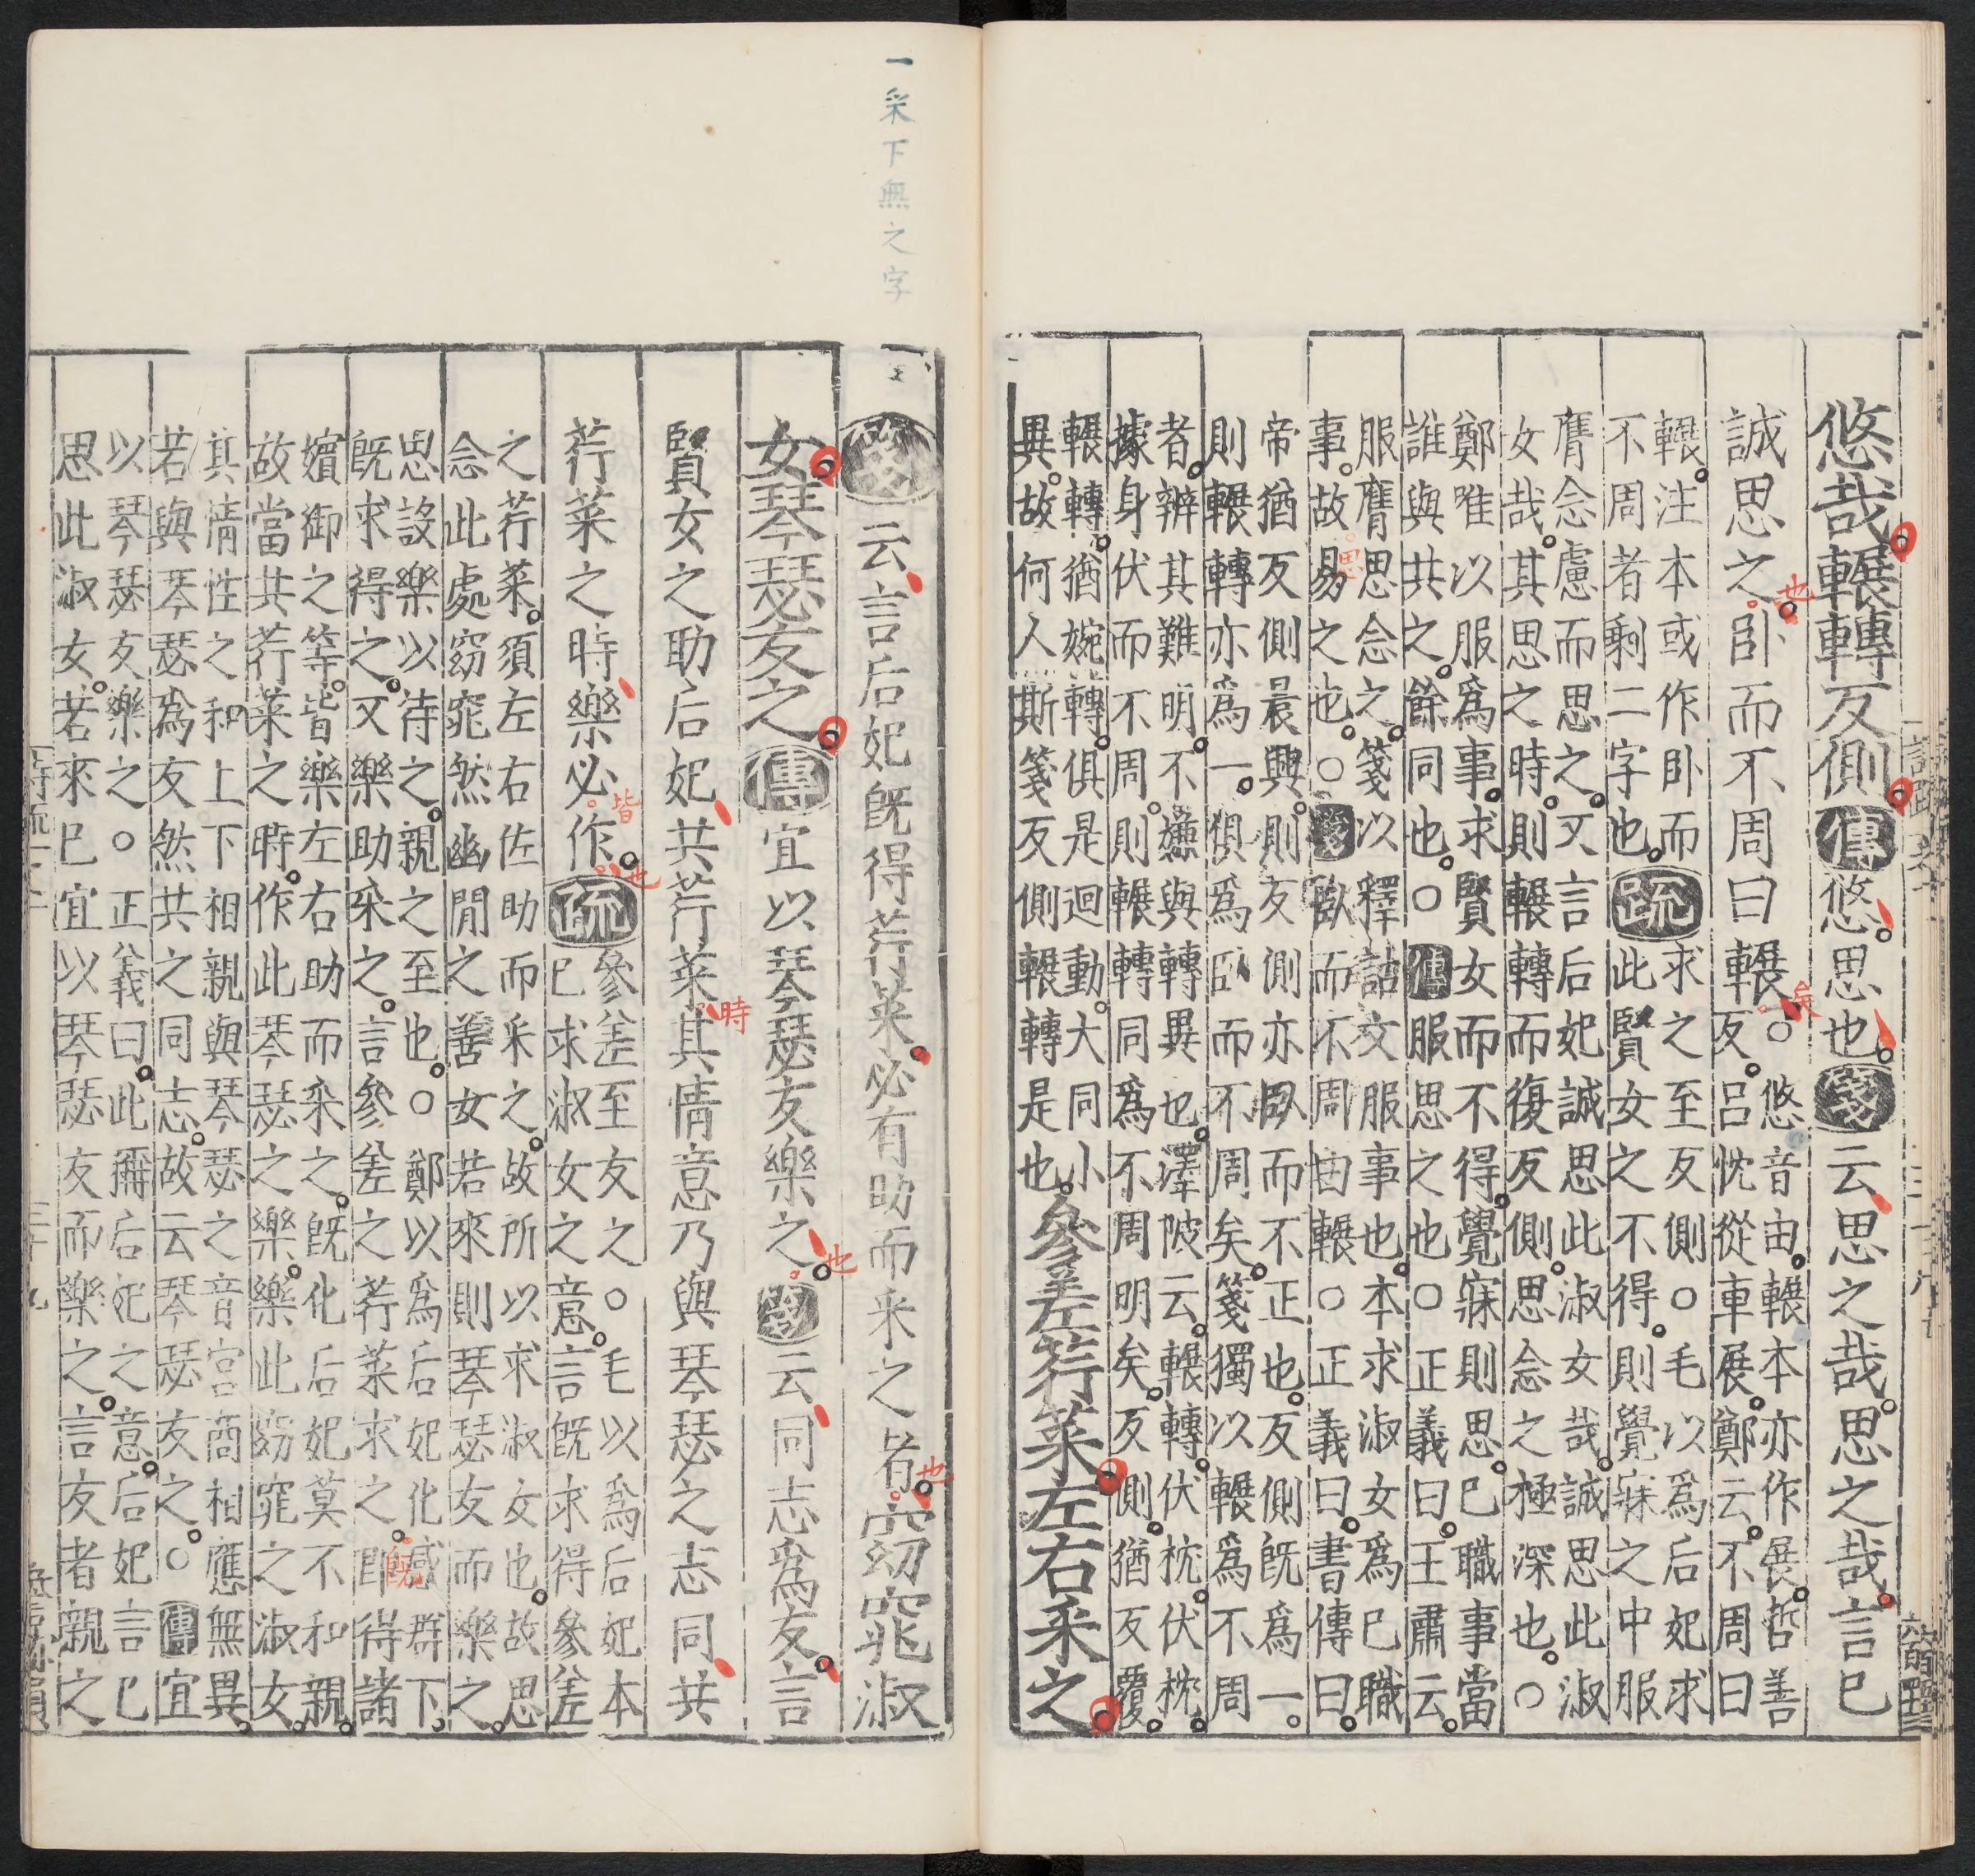 悠哉輾轉反側傳悠思也箋云思之哉思之哉言已
誠思之臥而不周曰輾○悠音由輾本亦作展哲善
反呂忱從車展鄭云不周曰
輾注本或作臥而
不周者剩二字也疏求之至反側○毛以爲后妃求
此賢女之不得則覺寐之中服
膺念慮而思之又言后妃誠思此淑女哉誠思此淑
女哉其思之時則輾轉而復反側思念之極深也○
鄭唯以服爲事求賢女而不得覺寐則思已職事當
誰與共之餘同也○傳服思之也○正義曰王肅云
服膺思念之箋以釋詁文服事也本求淑女爲已職
事故易之也○箋臥而不周曰輾○正義曰書傳曰
帝猶反側晨興則反側亦臥而不正也反側既爲一
則輾轉亦爲一俱爲臥而不周矣箋獨以輾爲不周
者辨其難明不嫌與轉異也澤陂云輾轉伏枕伏枕
據身伏而不周則輾轉同爲不周明矣反側猶反覆
輾轉猶婉轉俱是迴動大同小
異故何人斯箋反側輾轉是也參差荇菜左右采之
也
矣
思
一采下無之字
箋云言后妃既得荇菜必有助而采之者窈窕淑
女琴瑟友之傳宜以琴瑟友樂之箋云同志爲友言
賢女之助后妃共荇菜其情意乃與琴瑟之志同共
荇菜之時樂必作疏參差至友之○毛以爲后妃本
已求淑女之意言既求得參差
之荇菜須左右佐助而采之故所以求淑女也故思
念此處窈窕然幽閒之善女若來則琴瑟友而樂之
思設樂以待之親之至也○鄭以爲后妃化感群下
既求得之又樂助采之言參差之荇菜求之即得諸
嬪御之等皆樂左右助而采之既化后妃莫不和親
故當共荇菜之時作此琴瑟之樂樂此窈窕之淑女
其情性之和上下相親與琴瑟之音宮商相應無異
若與琴瑟爲友然共之同志故云琴瑟友之○傳宜
以琴瑟友樂之○正義曰此稱后妃之意后妃言已
思此淑女若來已宜以琴瑟友而樂之言友者親之
也
也
時
皆
也
既